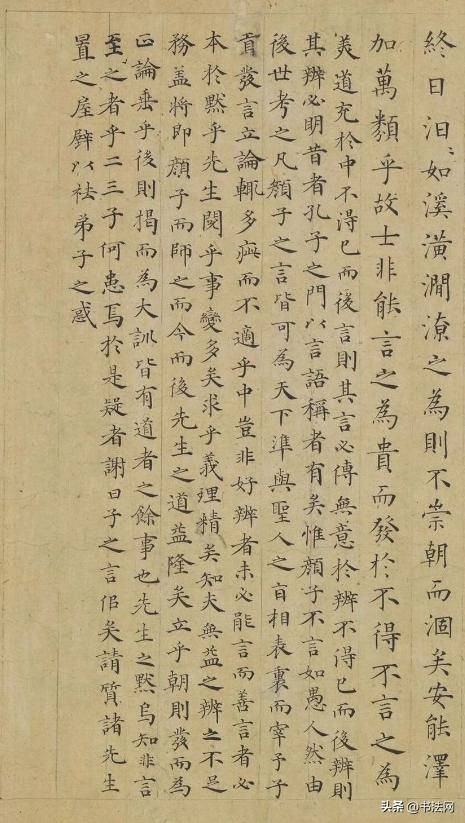 終日汩〻如溪潢澗潦之為則不崇朝而涸矣安能澤
加萬類乎故士非能言之為貴而發於不得不言之為
美道充於中不得已而後言則其言必傳無意於辨不得已而後辨則
其辨必明昔者孔子之門以言語稱者有矣惟顏子不言如愚人然由
後世考之凡顏子之言皆可為天下準與聖人之旨相表裏而宰予子
貢發言立論輒多疵而不適乎中豈非好辨者未必能言而善言者必
本於默乎先生閱乎事變多矣求乎義理精矣知夫無益之辨之不足
務盖將即顏子而師之而今而後先生之道益隆矣立乎朝則發而為
正論垂乎後則揭而為大訓皆有道者之餘事也先生之默烏知非言
至之者乎二三子何患焉於是疑者謝曰子之言信矣請質諸先生
置之屋壁以祛弟子之惑
头条 @书法网